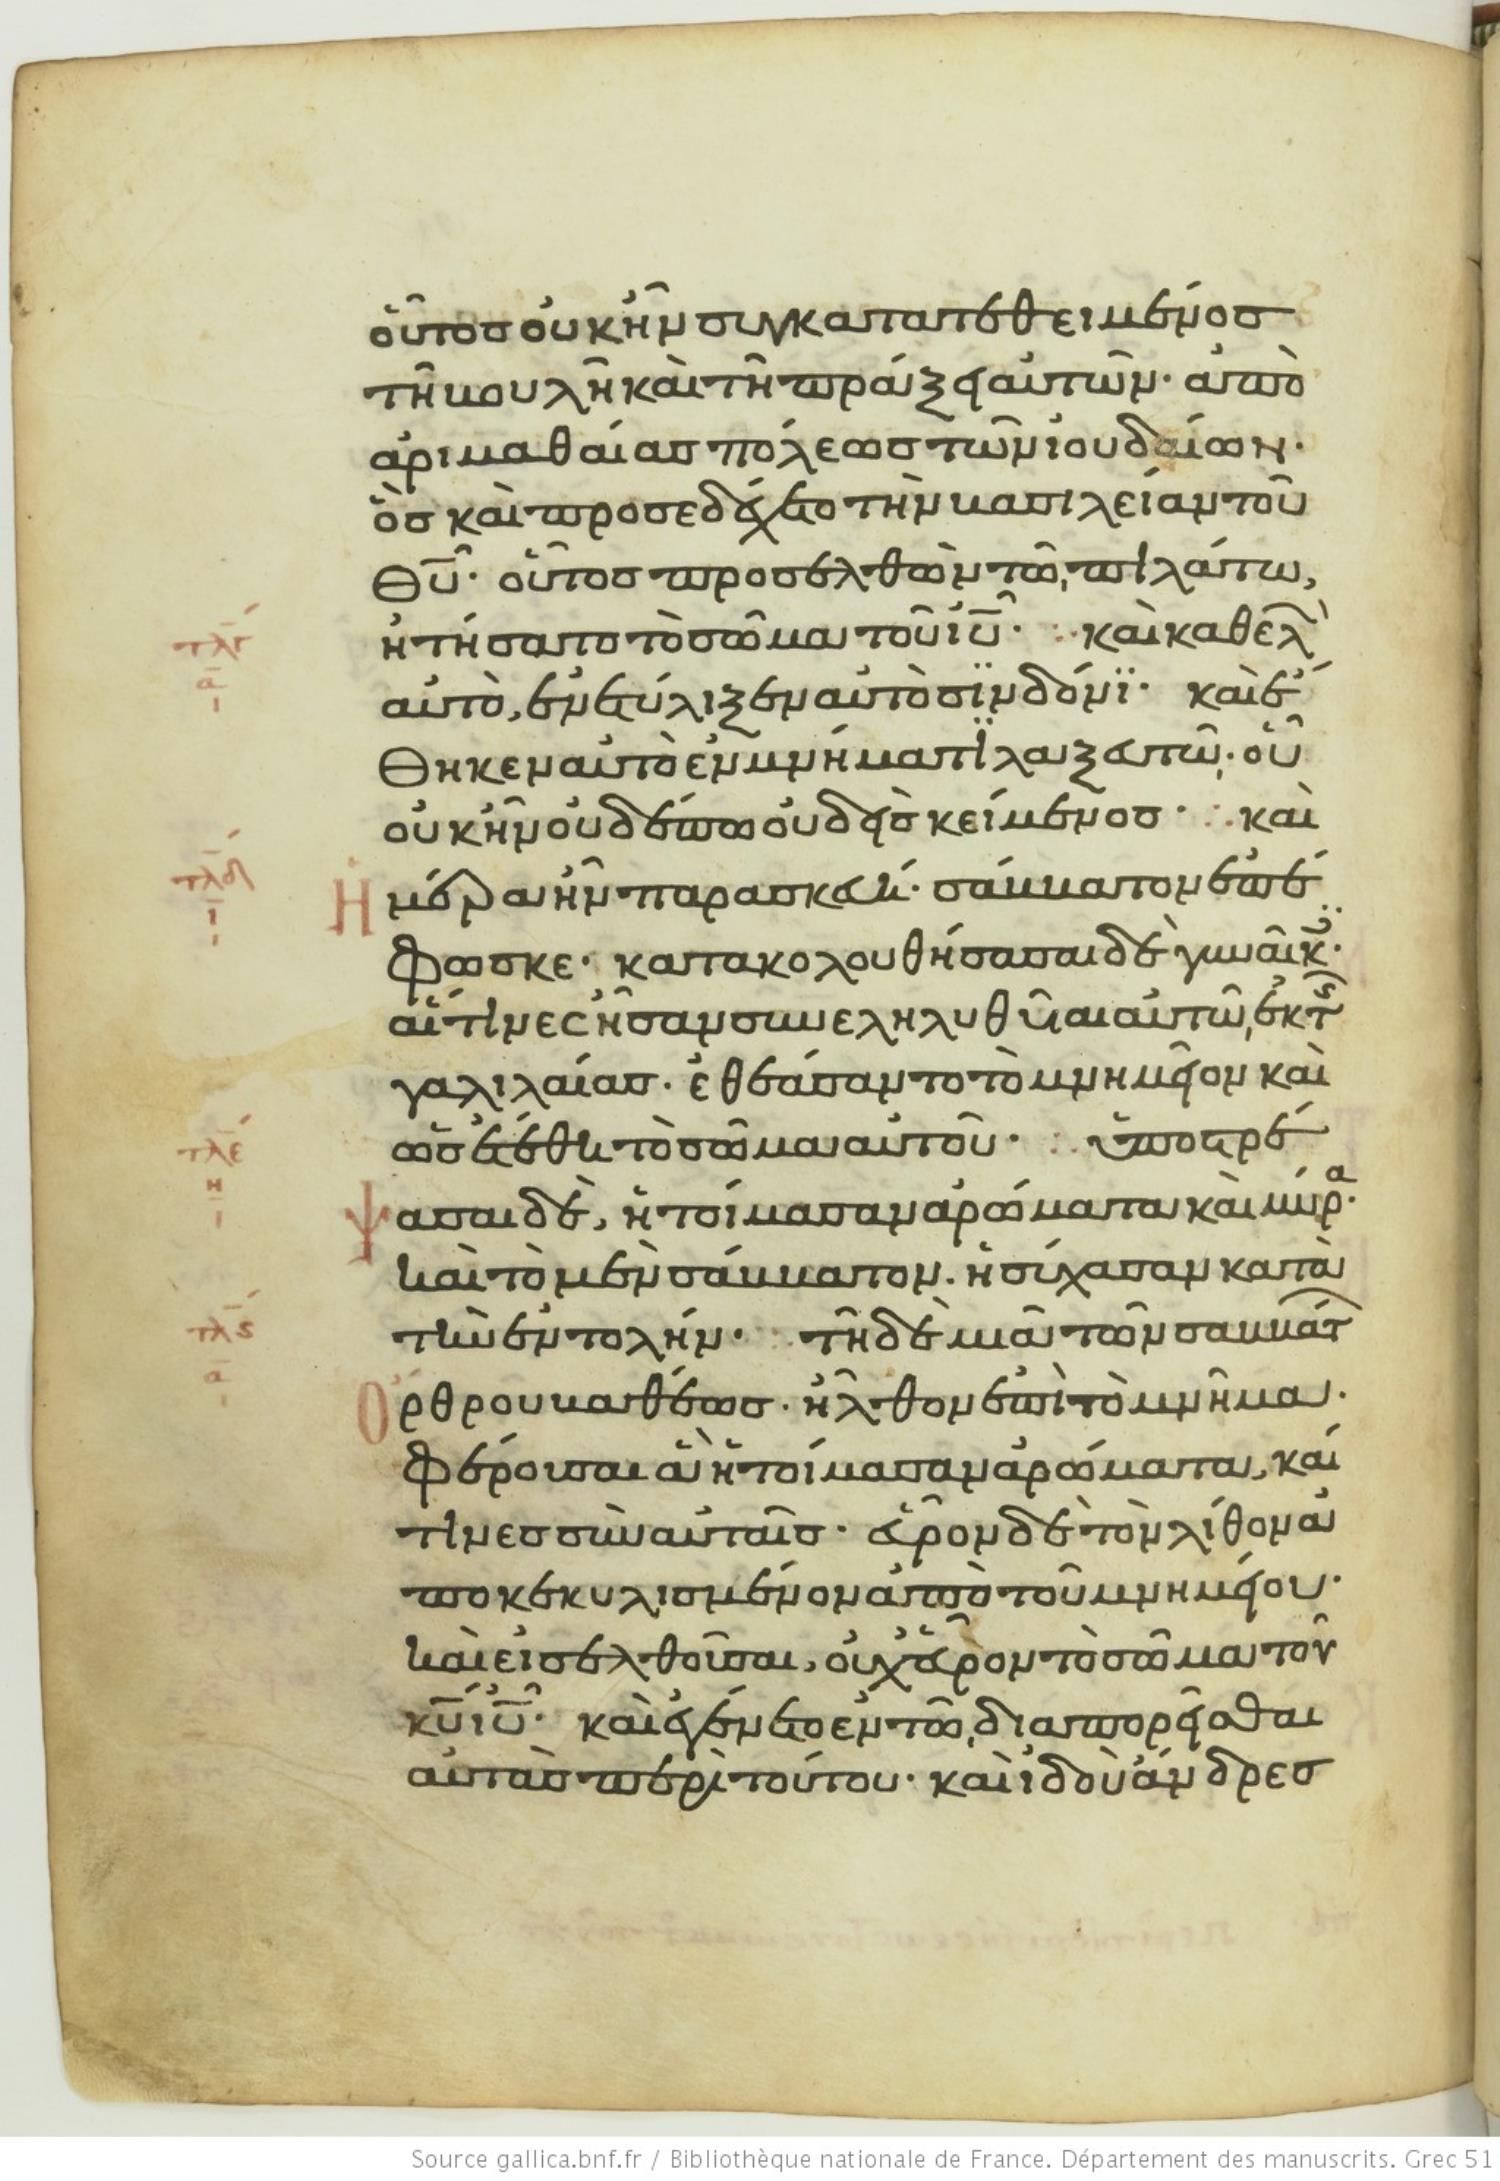 οὗτοσ οὐκ ἦν συγκατατεθειμένοσ
τῆ βουλῆ καὶ τῆ πράξει αὐτῶν· ἀπὸ
ἀριμαθαίασ πόλεωσ τῶν ἰουδαίων·
ὃσ καὶ προσεδέχετο τὴν βασιλείαν τοῦ
θ̅υ̅· οὗτοσ προσελθὼν τῶ, πιλάτω,
ἠτήσατο τὸ σῶμα τοῦ ἰ̅υ̅· καὶ καθελ
τλγ
α
αὐτὸ, ἐνετύλιξεν αὐτὸ σϊνδόνϊ· καὶ ἔ
θηκεν αὐτὸ ἐν μνήματϊ λαξευτῶ,· οὗ
οὐκ ἦν οὐδέπω οὐδεὶσ κείμενοσ· καὶ
τλδ
ι
Ημέρα ἦν παρασκευή· σάββατον ἐπέ
φωσκε· κατακολουθήσασαι δὲ γυναῖκ·
αἵτινεσ ἦσαν συνεληλυθυῖαι αὐτῶ, ἐκ τ
γαλιλαίασ· ἐθεάσαντο τὸ μνημεῖον καὶ
ὡσ ἐτέθη τὸ σῶμα αὐτοῦ· ὑποστρέ
τλε
η
Ψασαι δὲ, ἡτοίμασαν ἀρώματα καὶ μύρα·
καὶ τὸ μὲν σάββατον· ἡσύχασαν κατὰ
τὴν ἐντολήν· τῆ δὲ μιᾶ τῶν σαββάτ
τλς
α
Ορθρου βαθέωσ· ἦλθον ἐπὶ τὸ μνῆμα·
φέρουσαι ἃ ἡτοίμασαν ἀρώματα, καί
τινεσ σὺν αὐταῖσ· εὗρον δὲ τὸν λίθον ἀ
ποκεκυλισμένον ἀπὸ τοῦ μνημείου·
καὶ εἰσελθοῦσαι, οὐχ εὗρον τὸ σῶμα τοῦ
κ̅υ̅ ἰ̅υ̅· καὶ ἐγένετο ἐν τῶ, διαπορεῖσθαι
αὐτὰσ περὶ τούτου· καὶ ἰδοὺ ἄνδρεσ
Source gallica.bnf.fr / Bibliothèque nationale de France. Département des manuscrits. Grec 51